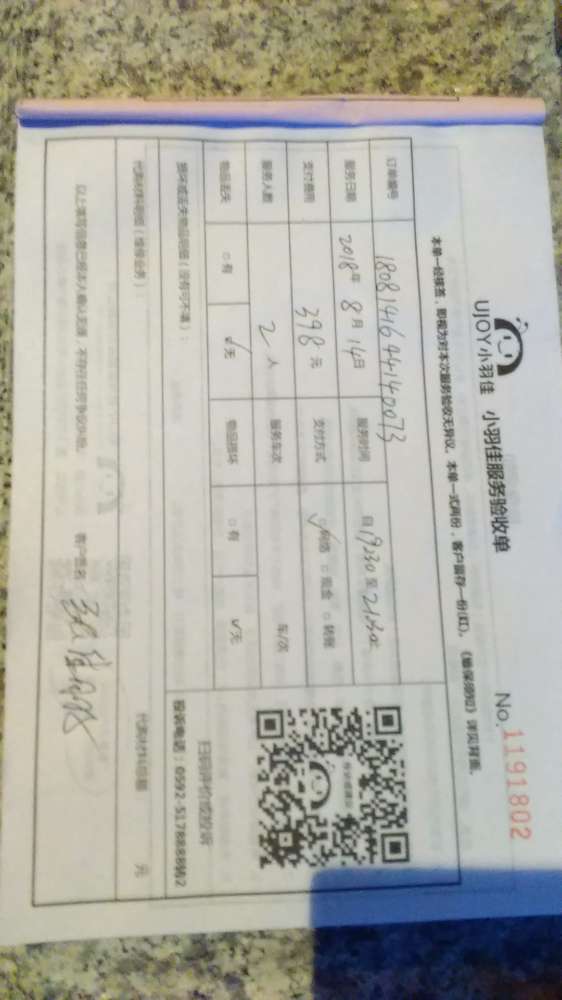 UJOY小羽佳 小羽佳服务验收单
No. 1191802
本单一经核签,即视为对本次服务验收无异议。本单一式两份,客户留存一份(红)。《维保须知》详见背面。
订单编号 180814164414 0073
服务日期 2018年 8月 14日 服务时间 自 19:30 至 21:30
支付费用 398 元 支付方式 ☑网络 □现金 □转账
服务人数 2 人 服务车次 车/次
物品丢失 □有 ☑无 物品损坏 □有 ☑无
损坏或丢失物品明细(没有可不填):
扫码评价或投诉
投诉电话:0592-5178888转2
代购材料明细(维修业务): 代购材料总额 元
以上填写信息已经本人确认无误,不存在任何争议纠纷。 客户签名: